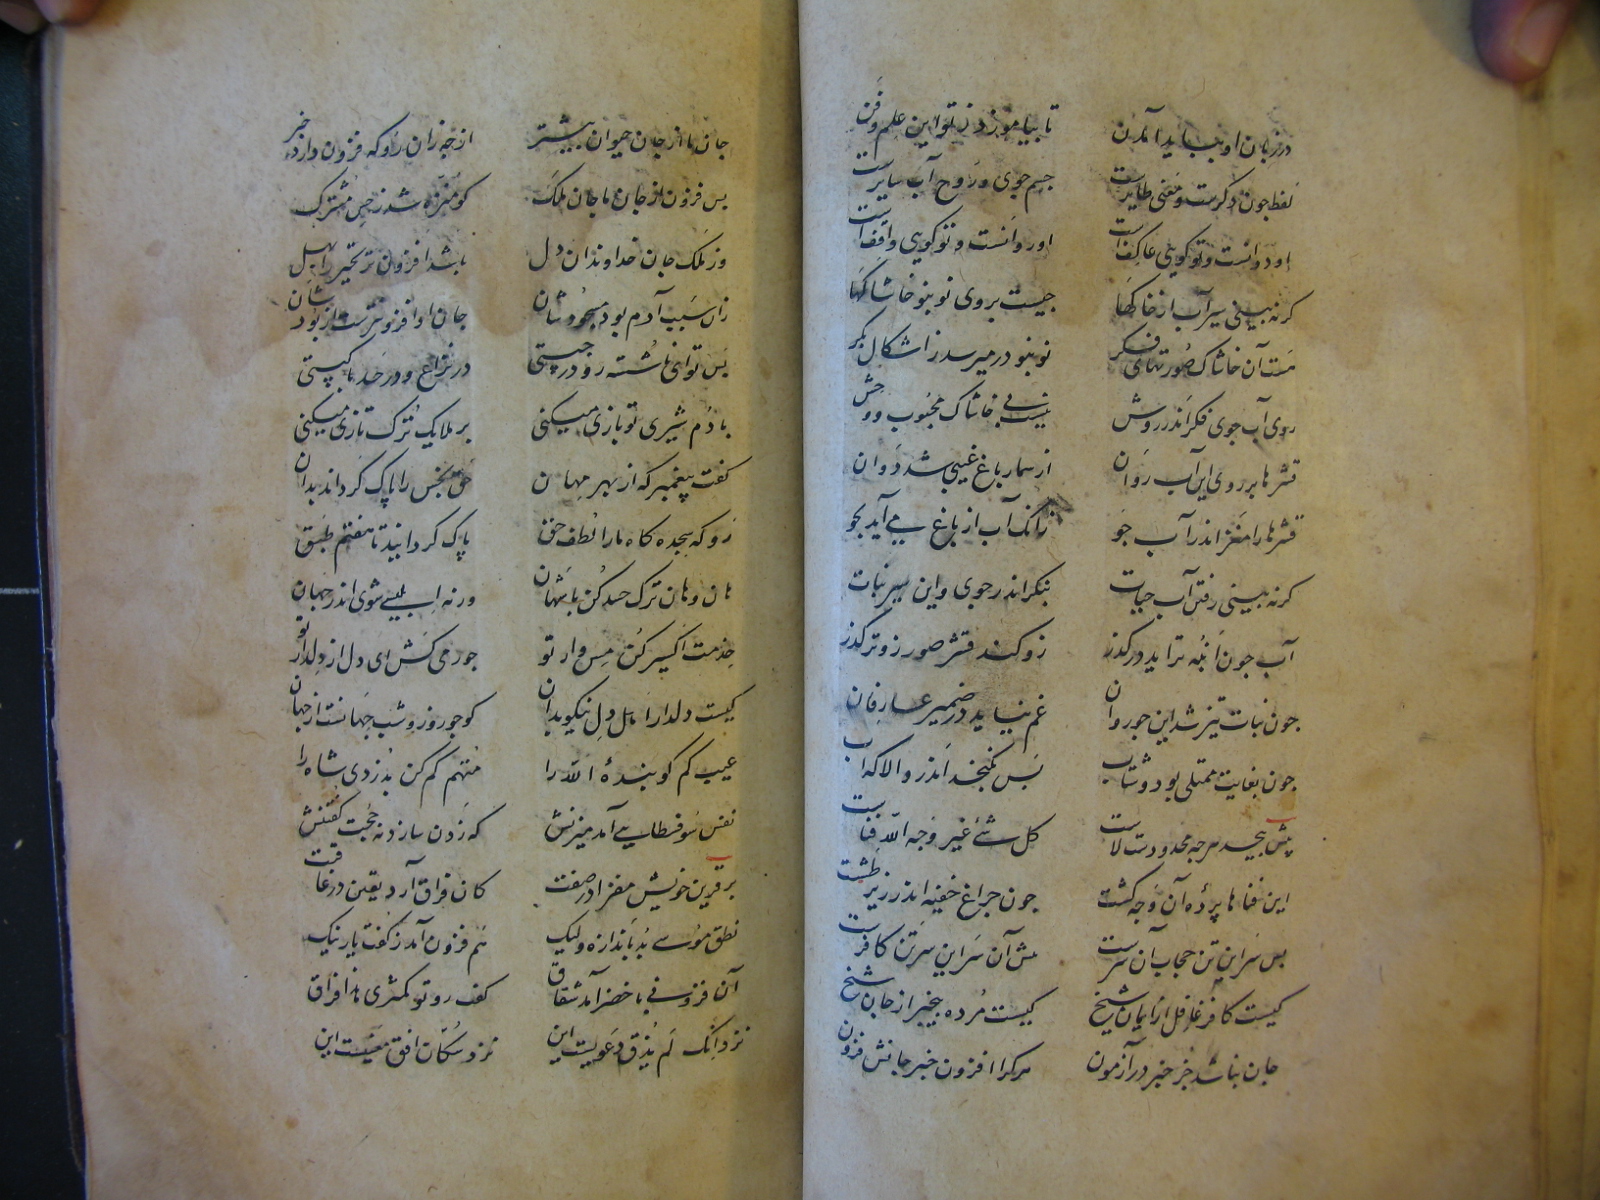 در زبان او بباید آمدن تا بیاموزد ز تو این علم و فن
لفظ چون وکرست و معنی طایرست جسم جوی و روح آب سایرست
او دوانست و تو کویی عاکفست او روانست و تو کویی واقفست
کر نه بینی سیر آب از خاکها چیست بر وی نو بنو خاشاکها
هست آن خاشاک صورتهای فکر نو بنو در میرسد اشکال بکر
روی آب جوی فکر اندر روش نیست بی خاشاک محبوب و وحش
قشرها بر روی این آب روان از ثمار باغ غیبی شد دوان
قشرها را مغز اندر آب جو زانک آب از باغ می آید بجو
کر نه بینی رفتن آب حیات بنکر اندر جوی و این سیر نبات
آب چون انبه تر اید در کذر زو کند قشر صور زوتر کذر
چون بغایت تیز شد این جو روان غم نپاید در ضمیر عارفان
چون بغایت ممتلی بود و شتاب پس نکنجد اندرو الا که آب
پیش بیحد هرچه محدودست لاست کل شئ غیر وجه الله فناست
این فناها پرده آن وجه کشت چون چراغ خفیه اندر زیر طشت
پس سر این تن حجاب آن سرست پیش آن سر این سر تن کافرست
کیست کافر غافل از ایمان شیخ کیست مرده بیخبر از جان شیخ
جان نباشد جز خبر در آزمون هرکرا افزون خبر جانش فزون
جان ما از جان حیوان بیشتر از چه زان رو که فزون دارد خبر
پس فزون از جان ما جان ملک کو منزه شد ز حس مشترک
وز ملک جان خداوندان دل باشد افزون تو تحیر را بهل
زان سبب آدم بود مسجودشان جان او افزونترست از بودشان
پس تو ای ناشسته رو در چیستی در نزاع و در حسد با کیستی
با دم شیری تو بازی میکنی بر ملایک ترک تازی میکنی
کفت پیغمبر که از بهر مهان حق نجس را پاک کرداند بدان
رو که سجده کاه ما را لطف حق پاک کردانید تا هفتم طبق
هان و هان ترک حسد کن با شهان ورنه ابلیسی شوی اندر جهان
خدمت اکسیر کن مس وار تو جور می کش ای دل از دلدار تو
کیست دلدار اهل دل نیکو بدان کو چو روز و شب جهانست از جهان
عیب کم کو بنده الله را متهم کم کن بدزدی شاه را
نفس سوفسطایی آمد میزنش که زدن سازد نه حجت کفتنش
بر قرین خویش مفزا در صفت کان فراق آرد یقین در عاقبت
نطق موسی بد باندازه ولیک هم فزون آمد ز کفت یار نیک
آن فزونی با خضر آمد شقاق کفت رو تو مکثری هذا فراق
نزد آنک لم یذق دعویست این نزد سکان افق معنیست این